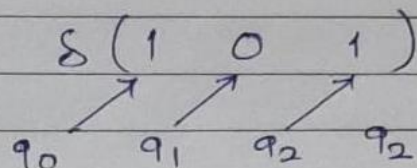 δ(1 0 1)
q0 q1 q2 q2